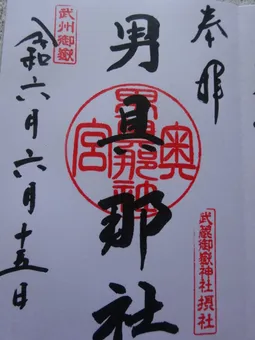 奉拝
武蔵御嶽神社 摂社
男具那社
奥宮
武州御嶽
令和六月六月十五日